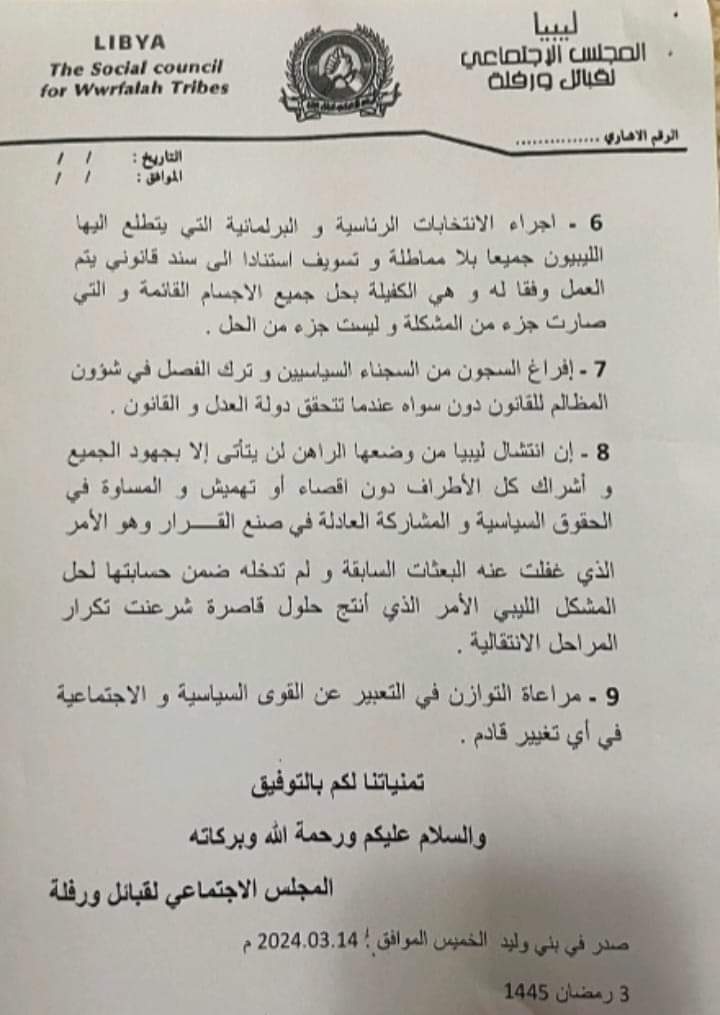 LIBYA
The Social council
for Wwrfalah Tribes
ليبيا
المجلس الإجتماعي
لقبائل ورفلة
الرقم الاشاري ...............
التاريخ : / /
الموافق : / /
6 - اجراء الانتخابات الرئاسية و البرلمانية التي يتطلع اليها
الليبيون جميعا بلا مماطلة و تسويف استنادا الى سند قانوني يتم
العمل وفقا له و هي الكفيلة بحل جميع الاجسام القائمة و التي
صارت جزء من المشكلة و ليست جزء من الحل .
7 - إفراغ السجون من السجناء السياسيين و ترك الفصل في شؤون
المظالم للقانون دون سواه عندما تتحقق دولة العدل و القانون .
8 - إن انتشال ليبيا من وضعها الراهن لن يتأتى إلا بجهود الجميع
و أشراك كل الأطراف دون اقصاء أو تهميش و المساوة في
الحقوق السياسية و المشاركة العادلة في صنع القـــرار وهو الأمر
الذي غفلت عنه البعثات السابقة و لم تدخله ضمن حسابتها لحل
المشكل الليبي الأمر الذي أنتج حلول قاصرة شرعنت تكرار
المراحل الانتقالية .
9 - مراعاة التوازن في التعبير عن القوى السياسية و الاجتماعية
في أي تغيير قادم .
تمنياتنا لكم بالتوفيق
والسلام عليكم ورحمة الله وبركاته
المجلس الاجتماعي لقبائل ورفلة
صدر في بني وليد الخميس الموافق : 2024.03.14 م
3 رمضان 1445